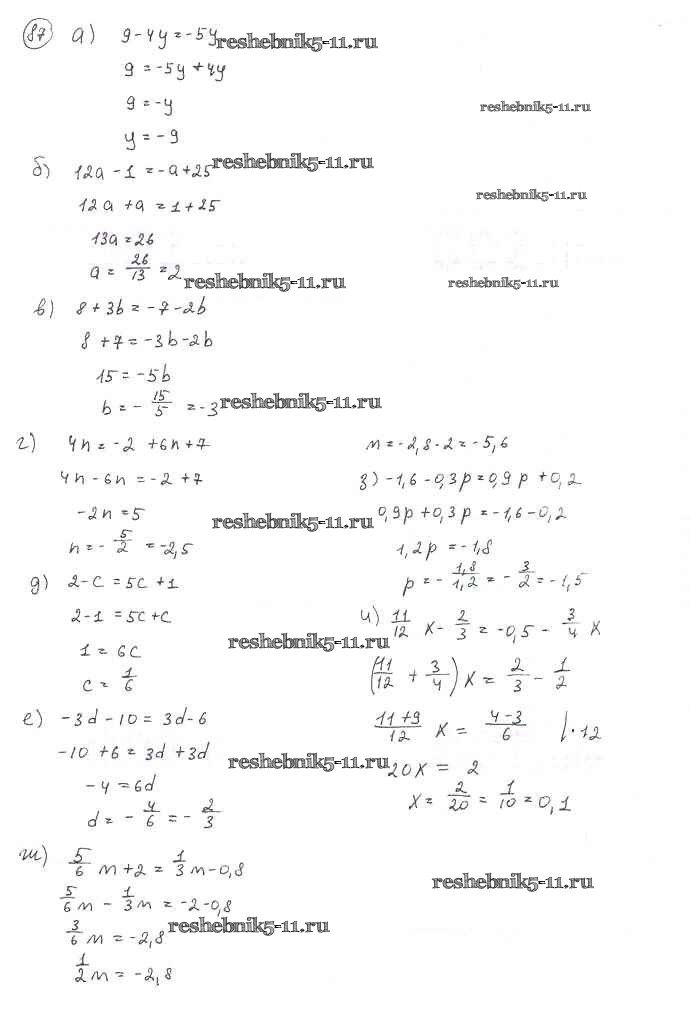 87 а) 9-4y=-5y
9=-5y+4y
9=-y
y=-9
б) 12a-1=-a+25
12a+a=1+25
13a=26
a=26/13=2
в) 8+3b=-7-2b
8+7=-3b-2b
15=-5b
b=-15/5=-3
г) 4n=-2+6n+7
4n-6n=-2+7
-2n=5
n=-5/2=-2,5
д) 2-c=5c+1
2-1=5c+c
1=6c
c=1/6
е) -3d-10=3d-6
-10+6=3d+3d
-4=6d
d=-4/6=-2/3
ж) 5/6 m+2=1/3 m-0,8
5/6 m-1/3 m=-2-0,8
3/6 m=-2,8
1/2 m=-2,8
m=-2,8·2=-5,6
з) -1,6-0,3p=0,9p+0,2
0,9p+0,3p=-1,6-0,2
1,2p=-1,8
p=-1,8/1,2=-3/2=-1,5
и) 11/12 x-2/3=-0,5-3/4 x
(11/12+3/4)x=2/3-1/2
11+9/12 x=4-3/6 |·12
20x=2
x=2/20=1/10=0,1
reshebnik5-11.ru
reshebnik5-11.ru
reshebnik5-11.ru
reshebnik5-11.ru
reshebnik5-11.ru
reshebnik5-11.ru
reshebnik5-11.ru
reshebnik5-11.ru
reshebnik5-11.ru
reshebnik5-11.ru
reshebnik5-11.ru
reshebnik5-11.ru